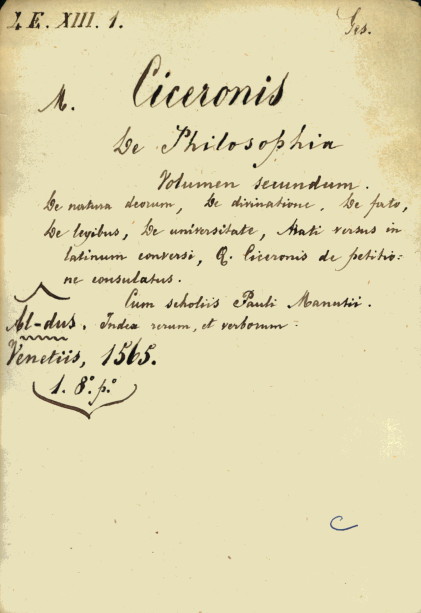 I. E. XIII. 1. Ges.
M. Ciceronis
De Philosophia
Volumen secundum.
De natura deorum, De divinatione, De fato,
De legibus, De universitate, Arati versus in
latinum conversi, Q. Ciceronis de petitio-
ne consulatus.
Cum scholiis Pauli Manutii.
Al-dus. Index rerum, et verborum.
Venetiis, 1565.
1. 8.° p.°
C